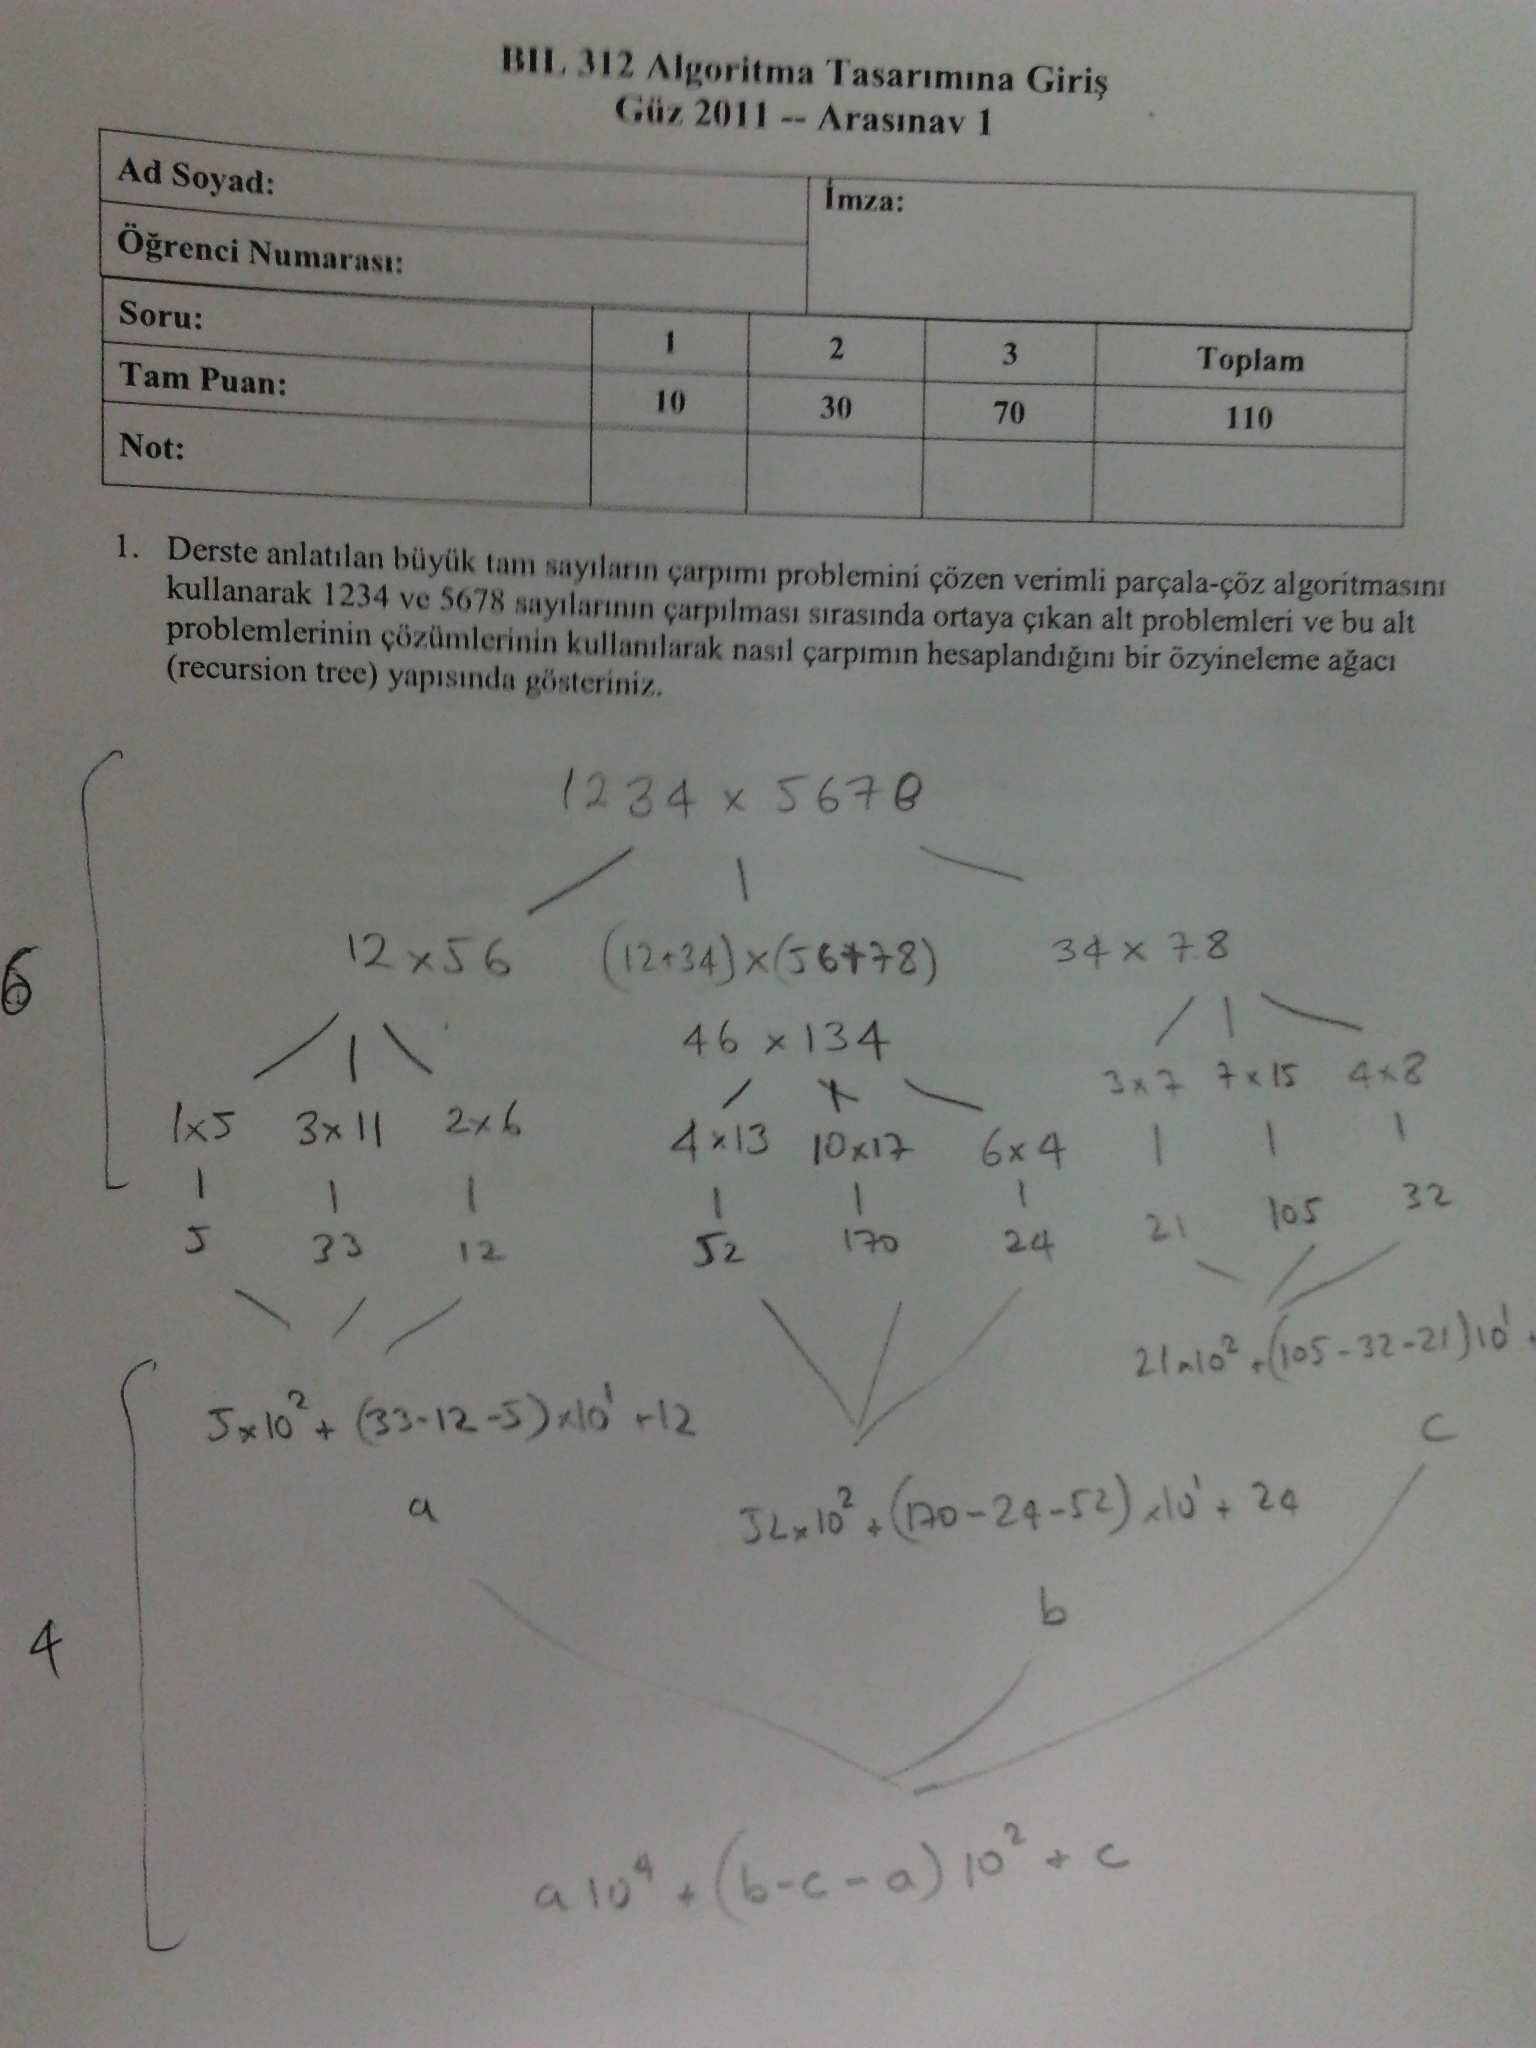 BIL 312 Algoritma Tasarımına Giriş
Güz 2011 -- Arasınav 1
Ad Soyad:
İmza:
Öğrenci Numarası:
Soru: 1 2 3 Toplam
Tam Puan: 10 30 70 110
Not:
1. Derste anlatılan büyük tam sayıların çarpımı problemini çözen verimli parçala-çöz algoritmasını
kullanarak 1234 ve 5678 sayılarının çarpılması sırasında ortaya çıkan alt problemleri ve bu alt
problemlerinin çözümlerinin kullanılarak nasıl çarpımın hesaplandığını bir özyineleme ağacı
(recursion tree) yapısında gösteriniz.
1234 x 5678
12 x 56 (12+34) x (56+78) 34 x 78
6
46 x 134
3x7 7x15 4x8
1x5 3x11 2x6 4x13 10x17 6x4
21 105 32
5 33 12 52 170 24
21x10² + (105-32-21)10¹ +
5x10² + (33-12-5)x10¹ +12
c
a
52x10² + (170-24-52)x10¹ + 24
b
4
a10⁴ + (b-c-a)10² + c